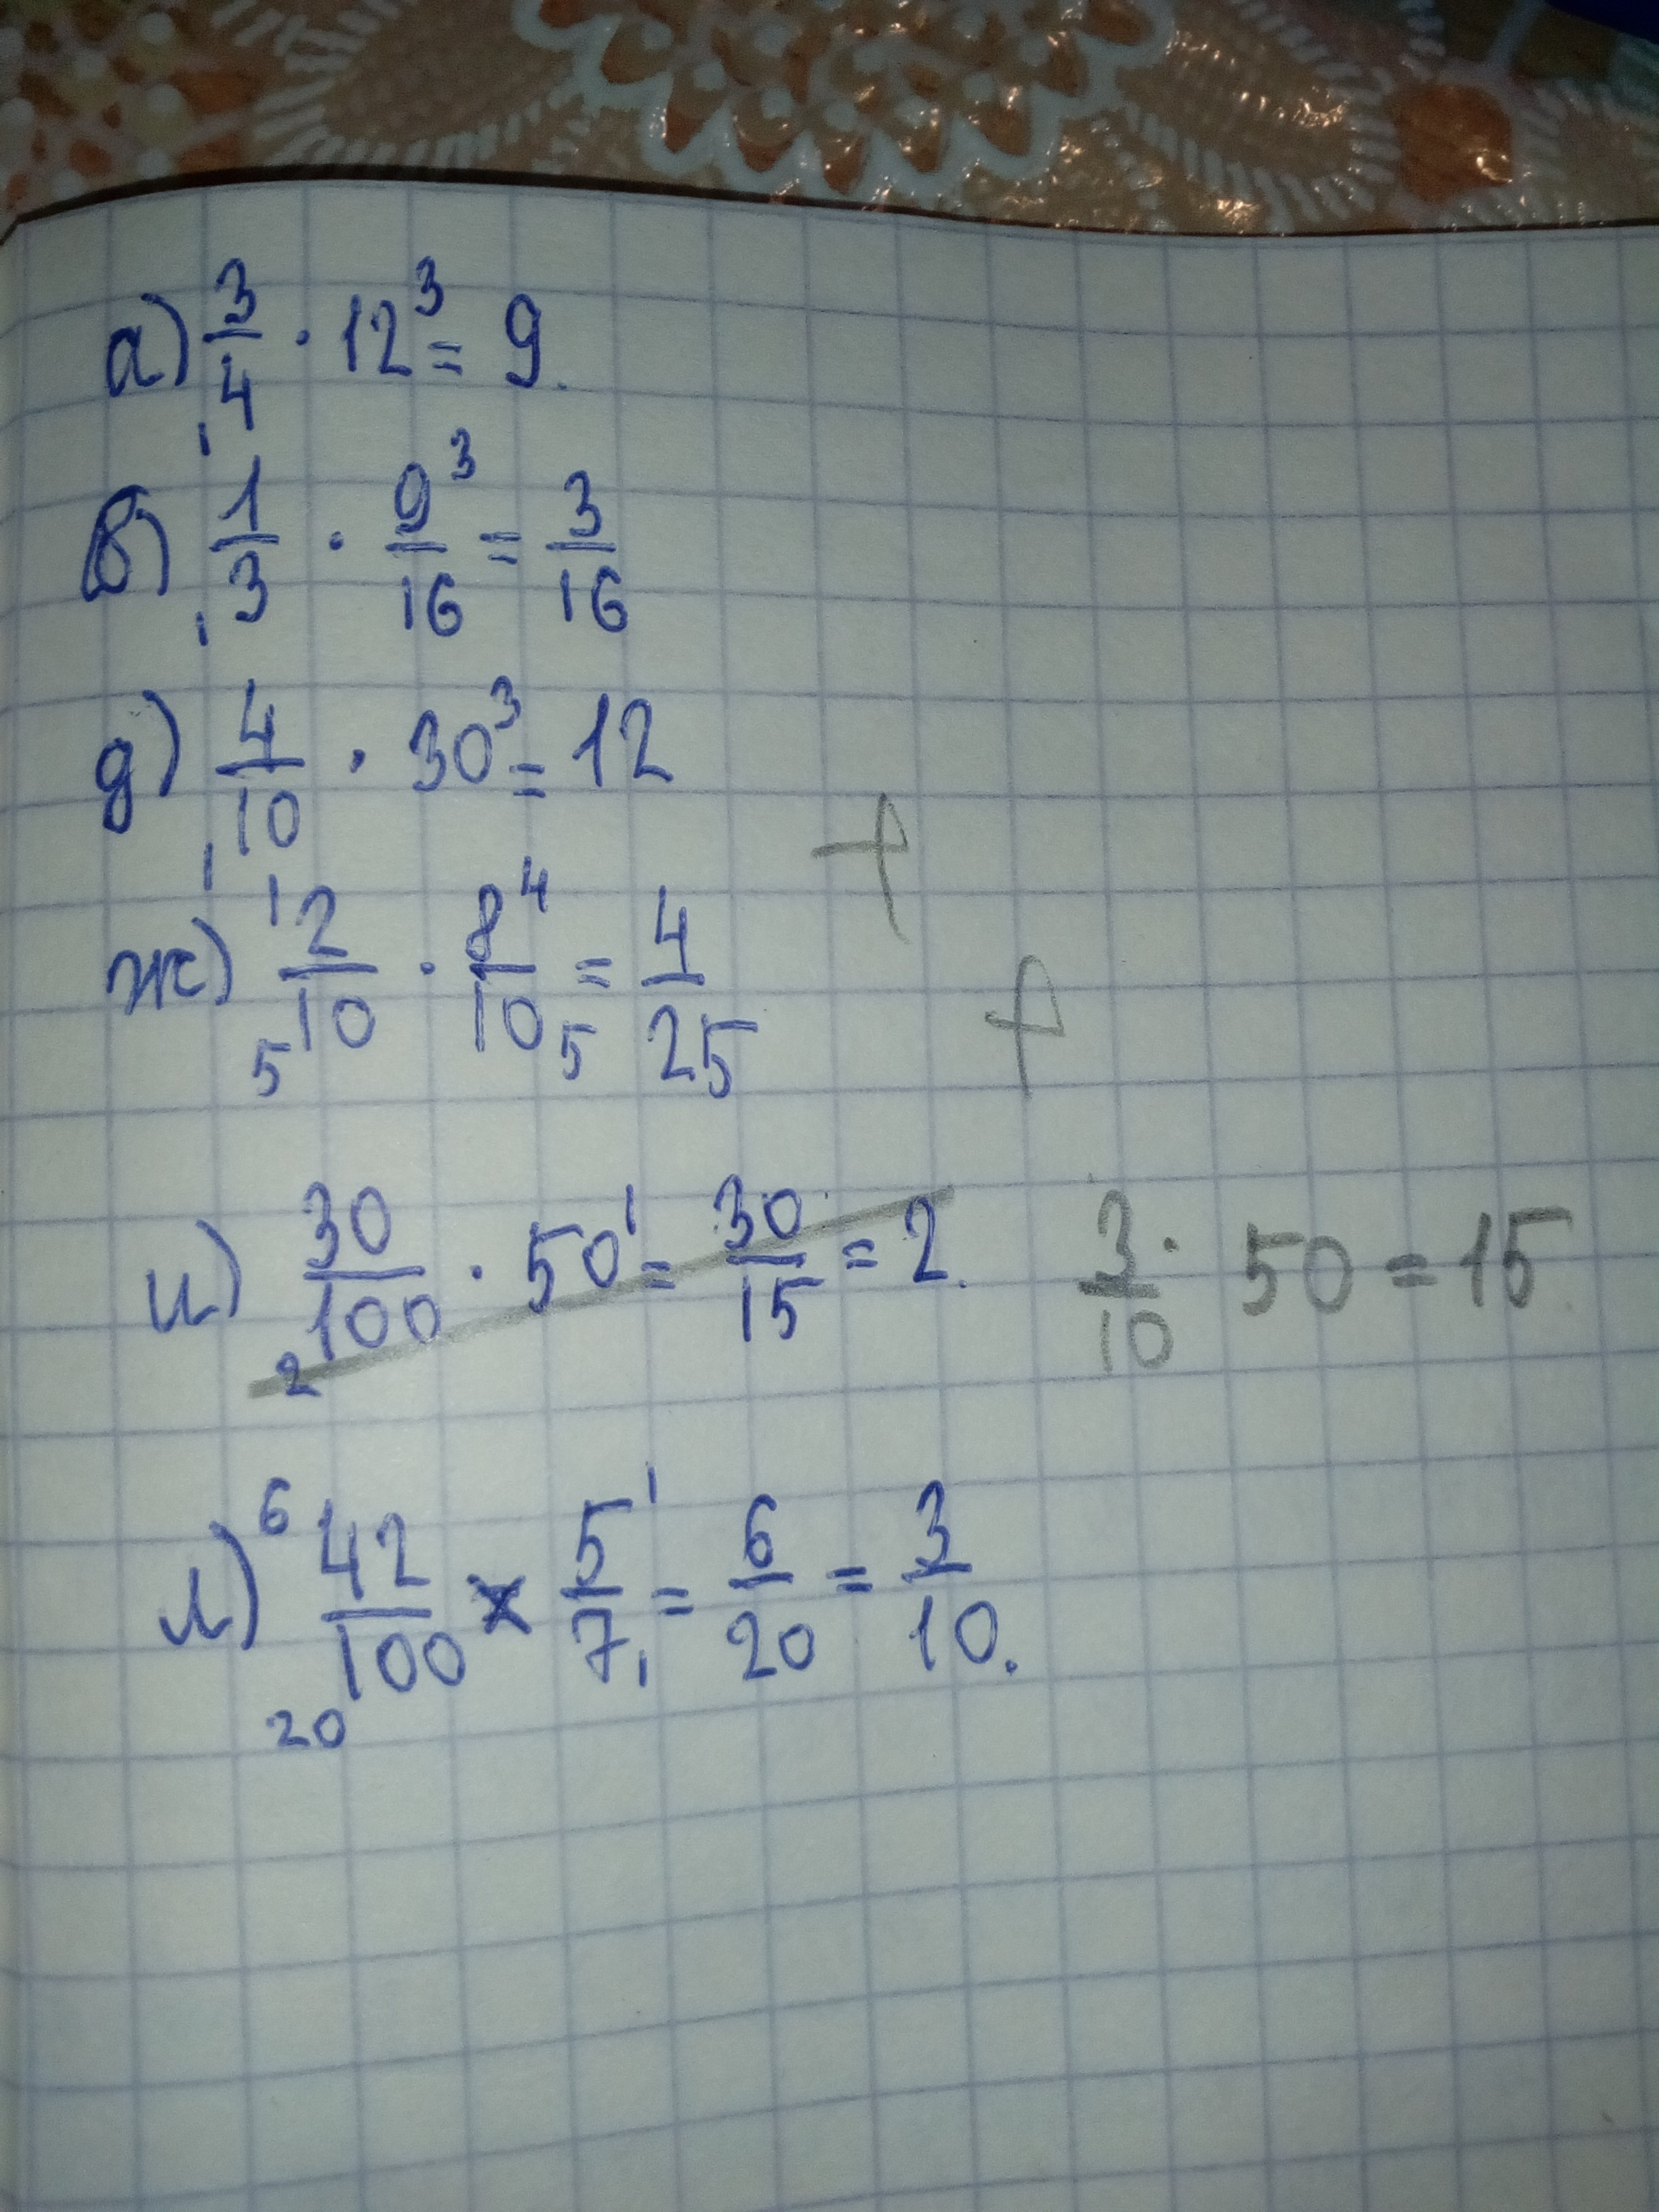 а) 3/4 · 12 ³ = 9.
1
в) 1/3 · 9/16 ³ = 3/16
1
д) 4/10 · 30 ³ = 12
1
ж) ¹ 2/10 · 8/10 ⁴ = 4/25
5 5
и) 30/100 · 50 ¹ = 30/15 = 2. 3/10 · 50 = 15.
2
л) ⁶ 42/100 × 5/7 ¹ = 6/20 = 3/10.
20 1